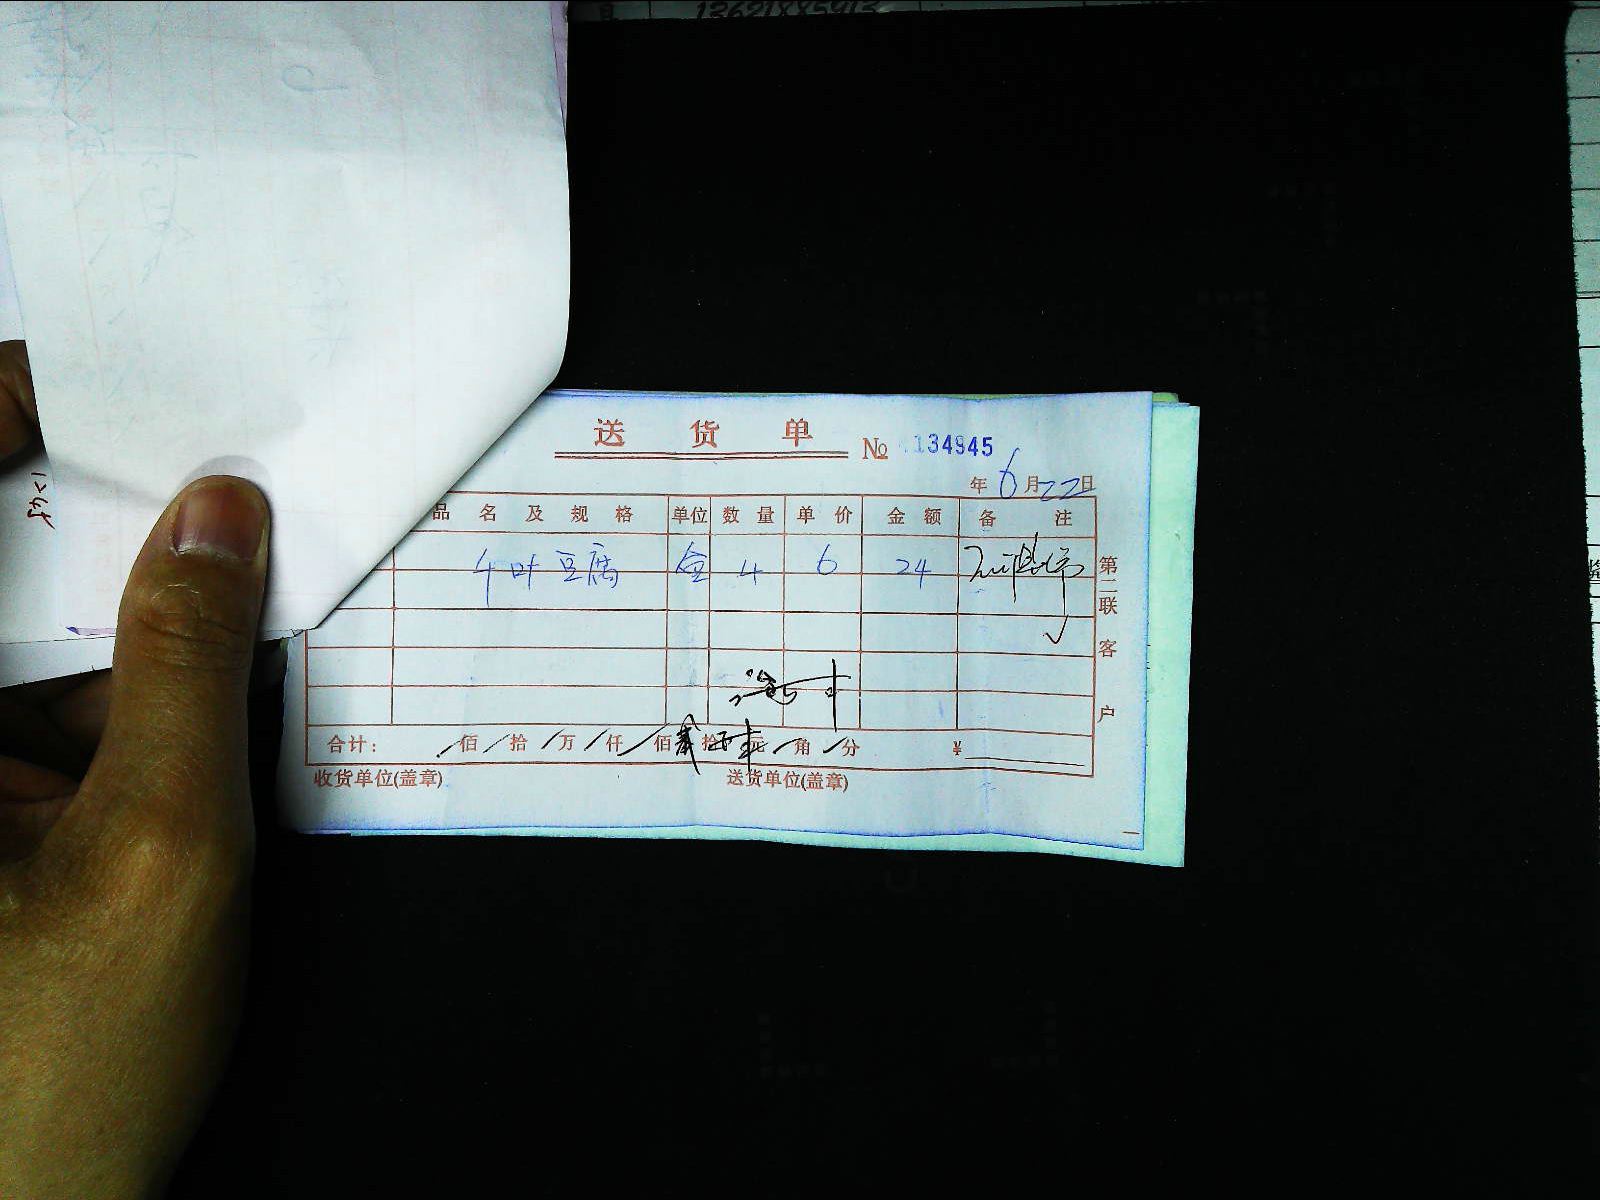 13621885913
送 货 单 № 134945
年 6 月 22 日
品 名 及 规 格 单位 数 量 单 价 金 额 备 注
千叶豆腐 盒 4 6 24
第二联 客户
合计： 佰 拾 万 仟 佰 贰 拾 肆 元 角 分 ¥
收货单位(盖章) 送货单位(盖章)